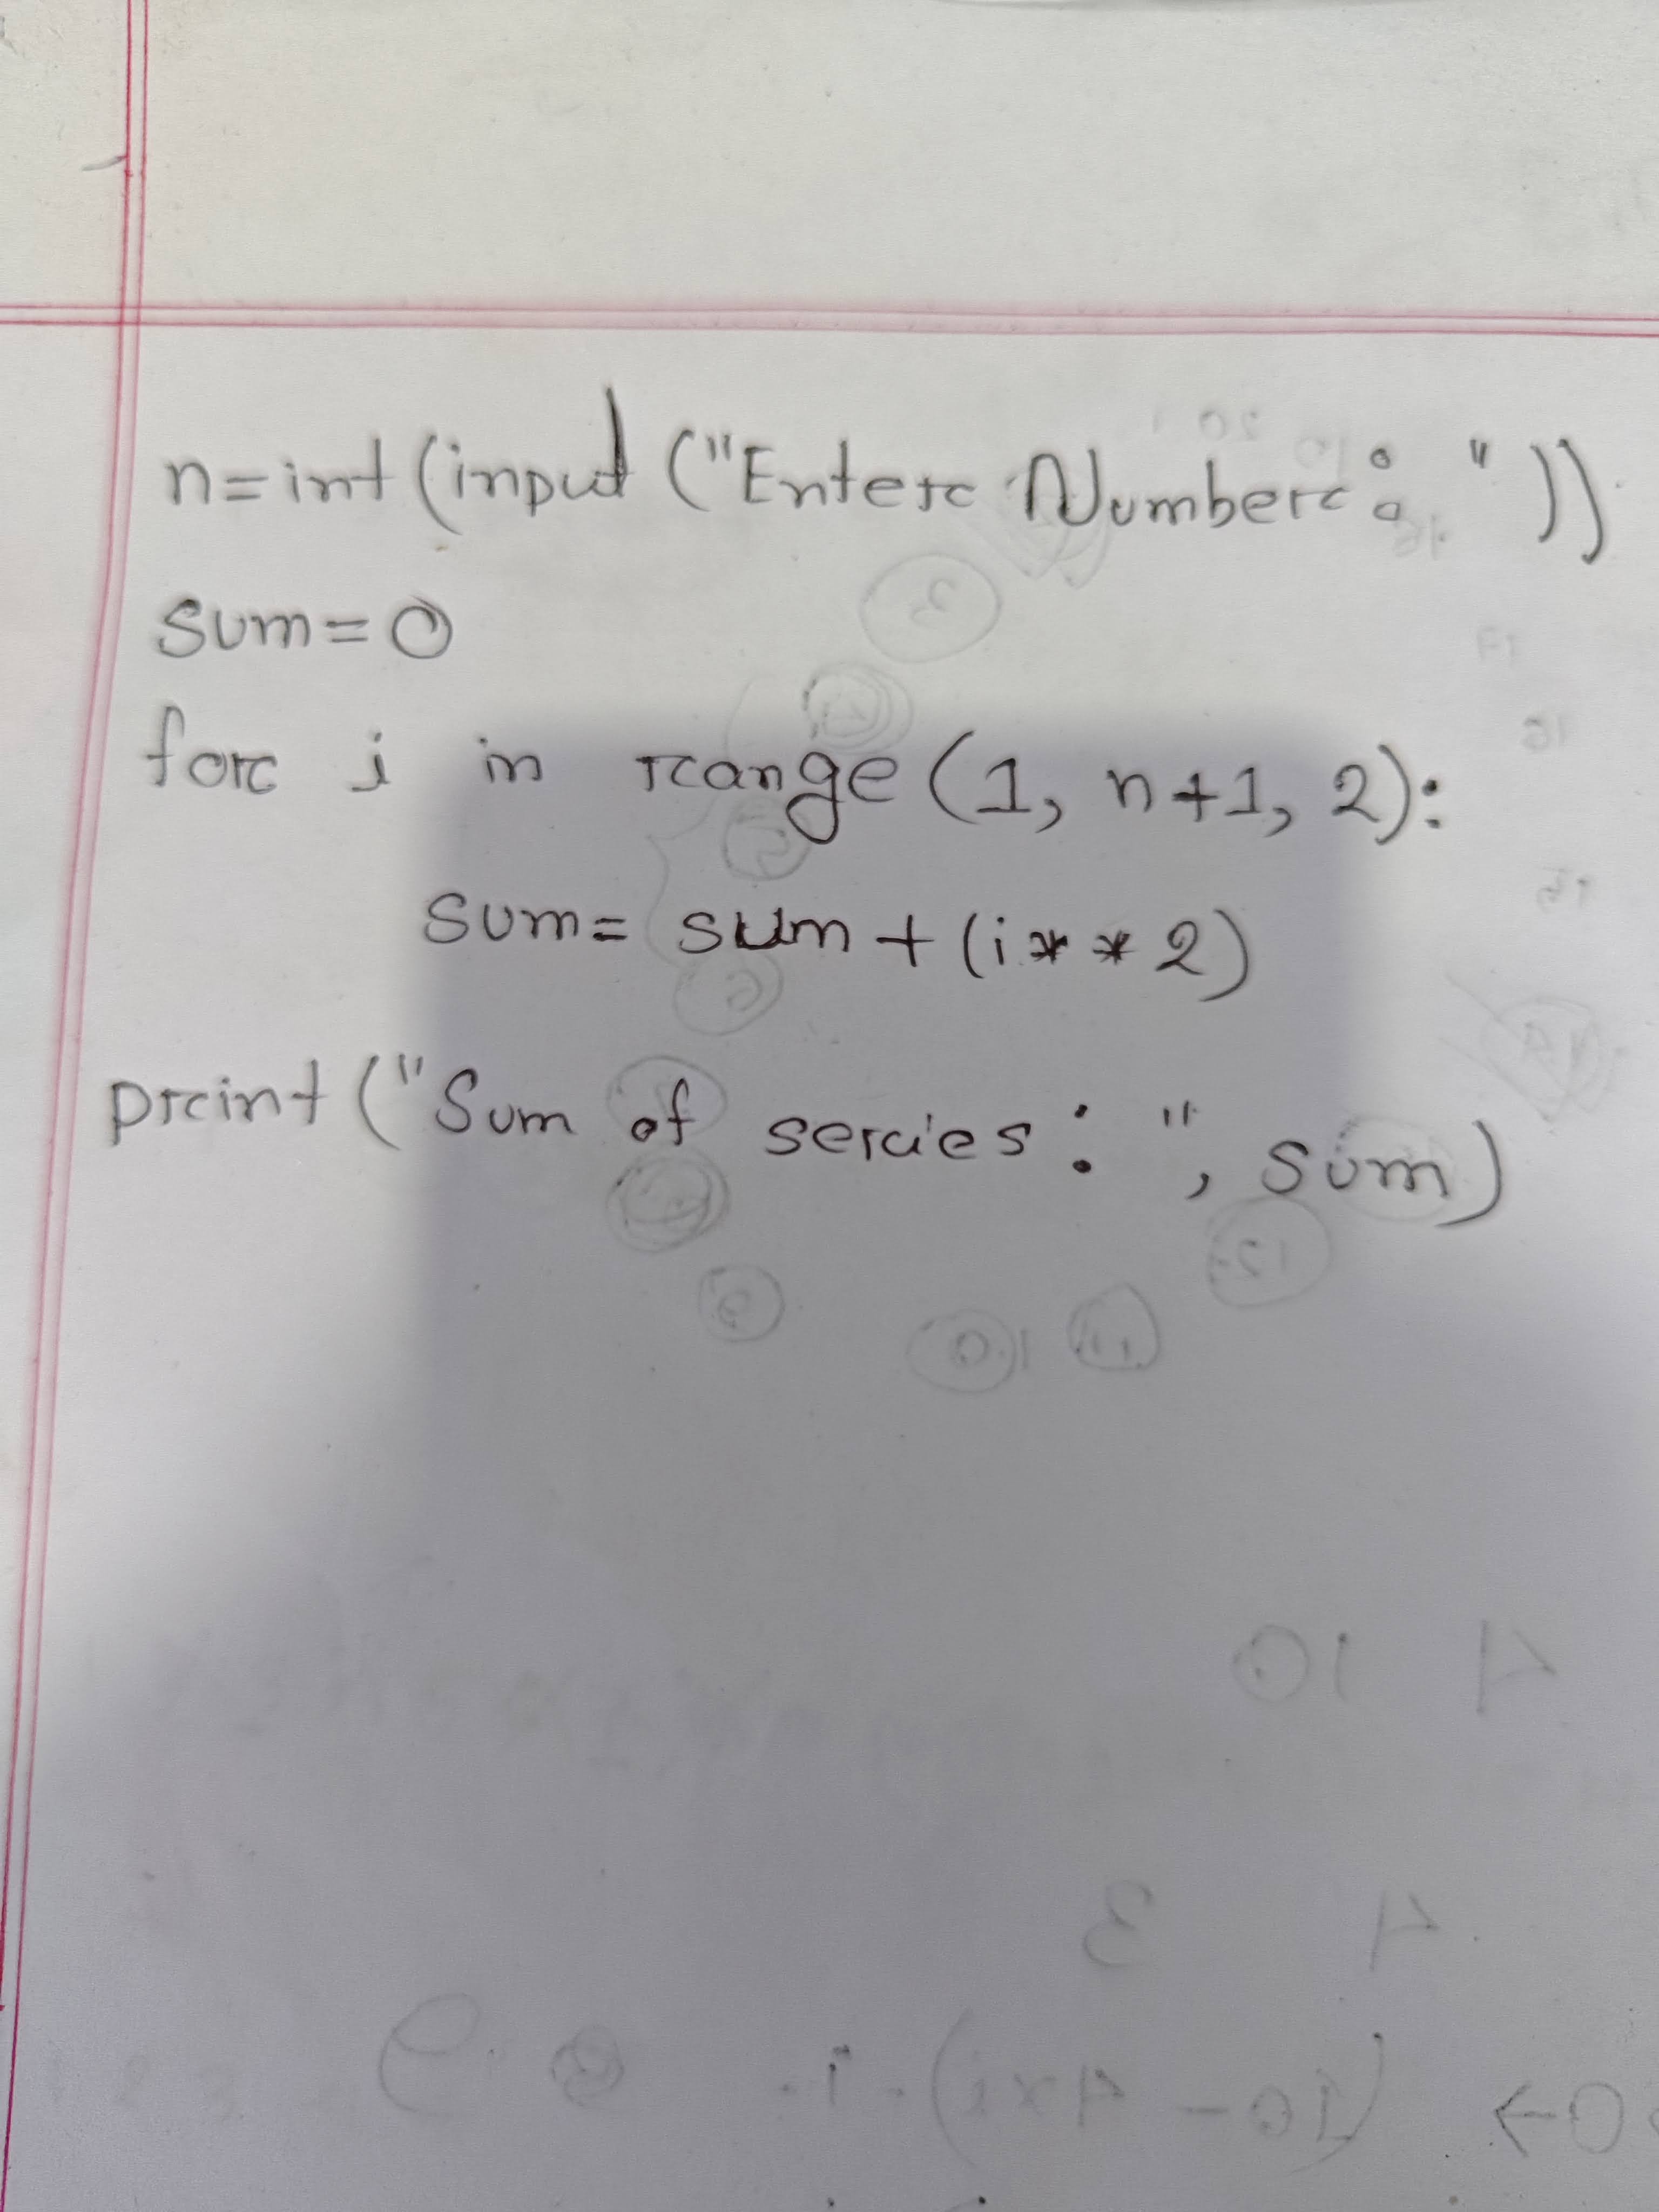 n=int(input("Enter Number: "))
sum=0
for i in range(1, n+1, 2):
sum= sum+(i**2)
print("Sum of series: ", sum)